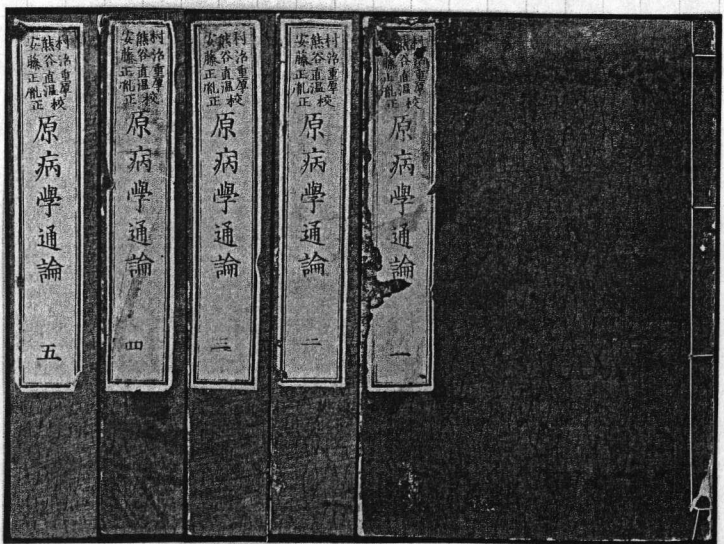 村治重厚校
谷直温
正胤正
原病學通論
一
村治重厚校
熊谷直温
安藤正胤正
原病學通論
二
村治重厚校
熊谷直温
安藤正胤正
原病學通論
三
村治重厚校
熊谷直温
安藤正胤正
原病學通論
四
村治重厚校
熊谷直温
安藤正胤正
原病學通論
五